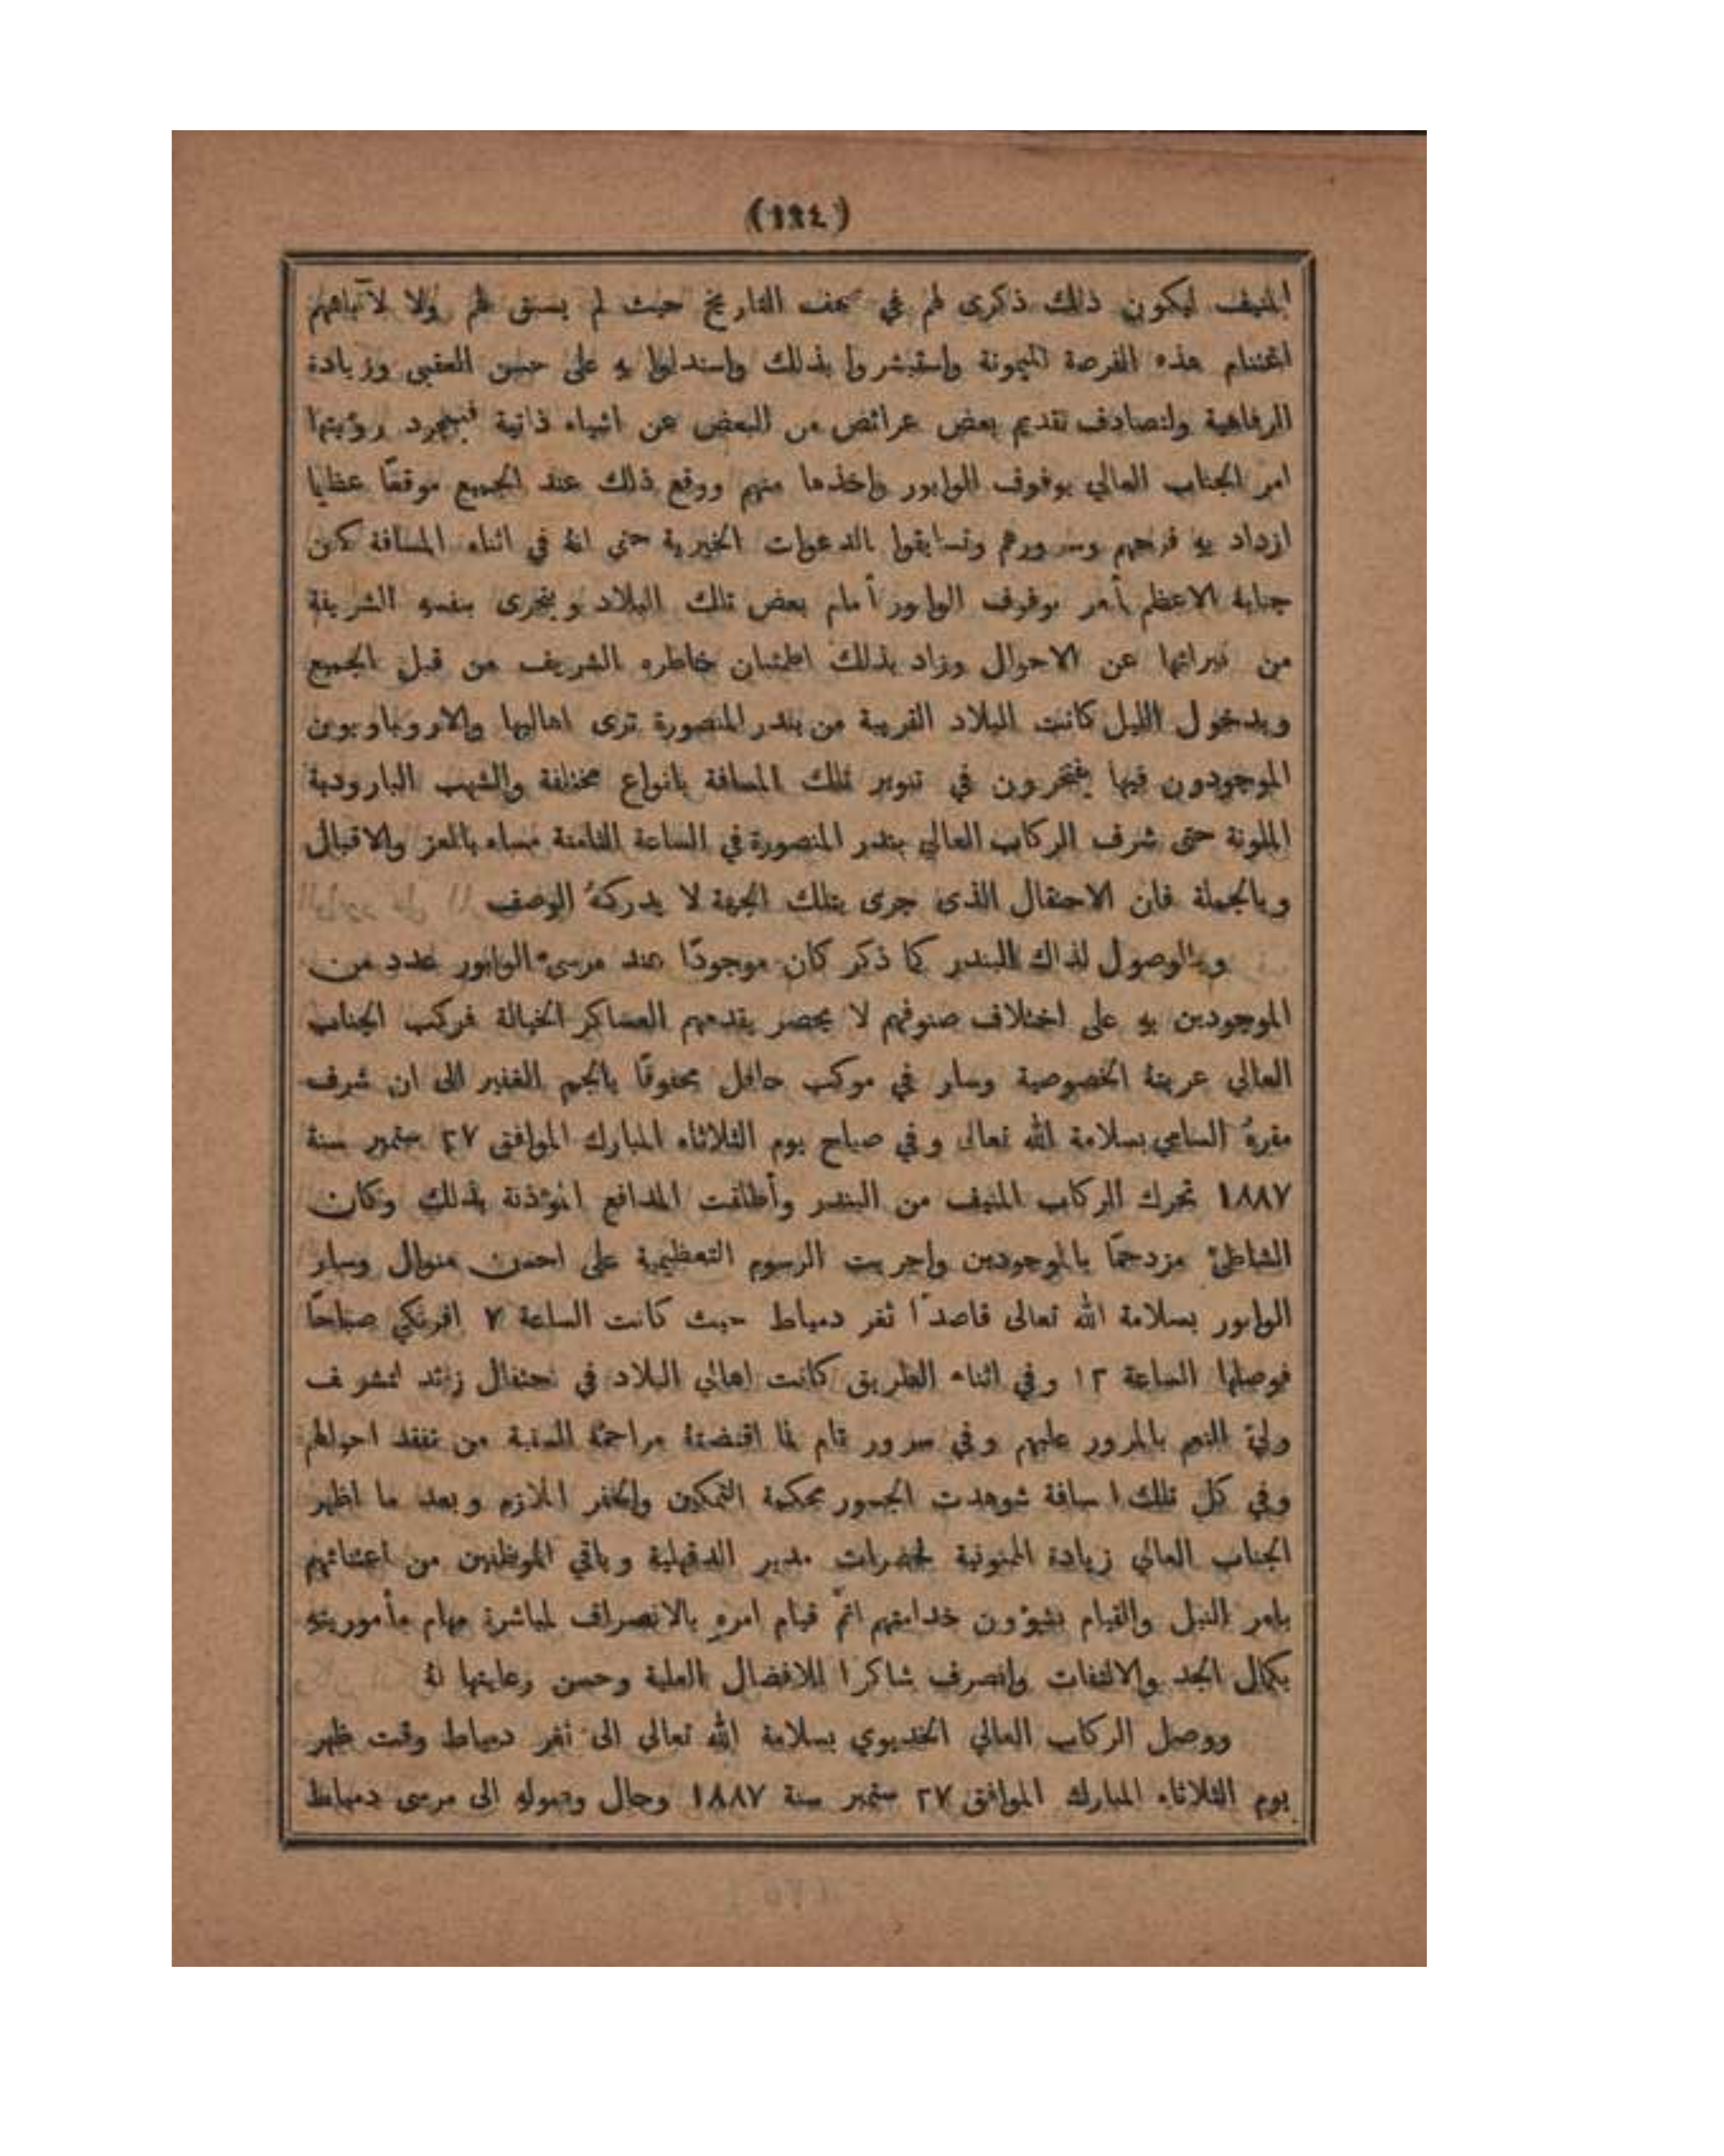 (١٩٤)
المنيف ليكون ذلك ذكرى لهم في صحف التاريخ حيث لم يسبق لهم ولا لآبائهم
اغتنام هذه الفرصة الميمونة واستبشروا بذلك واستدلوا به على حسن العقبى وزيادة
الرفاهية ولتصادف تقديم بعض عرائض من البعض عن اشياء ذاتية فبمجرد رؤيتها
امر الجناب العالي بوقوف الوابور واخذها منهم ووقع ذلك عند الجميع موقعًا عظيما
ازداد به فرحهم وسرورهم وتسابقوا بالدعوات الخيرية حتى انهُ في اثناء المسافة كان
جنابهُ الاعظم يأمر بوقوف الوابور أمام بعض تلك البلاد ويتحرى بنفسهِ الشريفة
من عن الاحوال وزاد بذلك اطمئنان خاطره الشريف من قبل الجميع
وبدخول الليل كانت البلاد القريبة من بندر المنصورة ترى اهاليها والاروباويون
الموجودون فيها يفتخرون في تنوير تلك المسافة بانواع مختلفة والشهب البارودية
الملونة حتى شرف الركاب العالي بندر المنصورة في الساعة الثامنة مساء بالعز والاقبال
وبالجملة فان الاحتفال الذى جرى بتلك الجهة لا يدركهُ الوصف
وبالوصول لذاك البندر كما ذكر كان موجودًا عند مرسى الوابور عدد من
الموجودين بهِ على اختلاف صنوفهم لا يحصر يقدمهم العساكر الخيالة فركب الجناب
العالي عربتهُ الخصوصية وسار في موكب حافل محفوفًا بالجم الغفير الى ان شرف
مقرهُ السامي بسلامة الله تعالى وفي صباح يوم الثلاثاء المبارك الموافق ٢٧ ستمبر سنة
١٨٨٧ تحرك الركاب المنيف من البندر وأطلقت المدافع المؤذنة بذلك وكان
الشاطئ مزدحمًا بالموجودين واجريت الرسوم التعظيمية على احسن منوال وسار
الوابور بسلامة الله تعالى قاصدًا ثغر دمياط حيث كانت الساعة ٧ افرنكي صباحًا
فوصلها الساعة ١٢ وفي اثناء الطريق كانت اهالي البلاد في احتفال زائد لتشريف
وليّ النعم بالمرور عليهم وفي سرور تام لما اقتضتهُ مراحمهُ السنية من تفقد احوالهم
وفي كل تلك المسافة شوهدت الجسور محكمة التمكين والخفر الملازم وبعد ما اظهر
الجناب العالي زيادة الممنونية لحضرات مدير الدقهلية وباقي الموظفين من اعتنائهم
بامر النيل والقيام بشؤون خدامتهم اتمّ قيام امرهِ بالانصراف لمباشرة مهام مأموريتهِ
بكمال الجد والالتفات وانصرف شاكرا للافضال العلية وحسن رعايتها لهُ
ووصل الركاب العالي الخديوي بسلامة الله تعالي الى ثغر دمياط وقت ظهر
يوم الثلاثاء المبارك الموافق ٢٧ ستمبر سنة ١٨٨٧ وحال وصولهِ الى مرسى دمياط